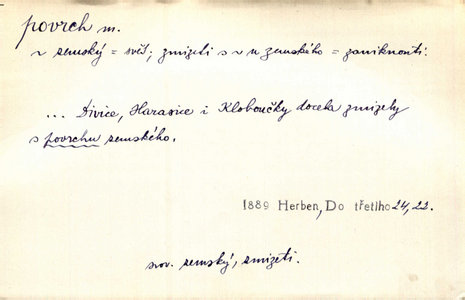 povrch m.
~ zemský = svět; zmizeti s ~u zemského = zaniknouti:
... Divice, Harasice i Kloboučky docela zmizely
s povrchu zemského.
1889 Herben, Do třetího 24, 22.
srov. zemský, zmizeti.